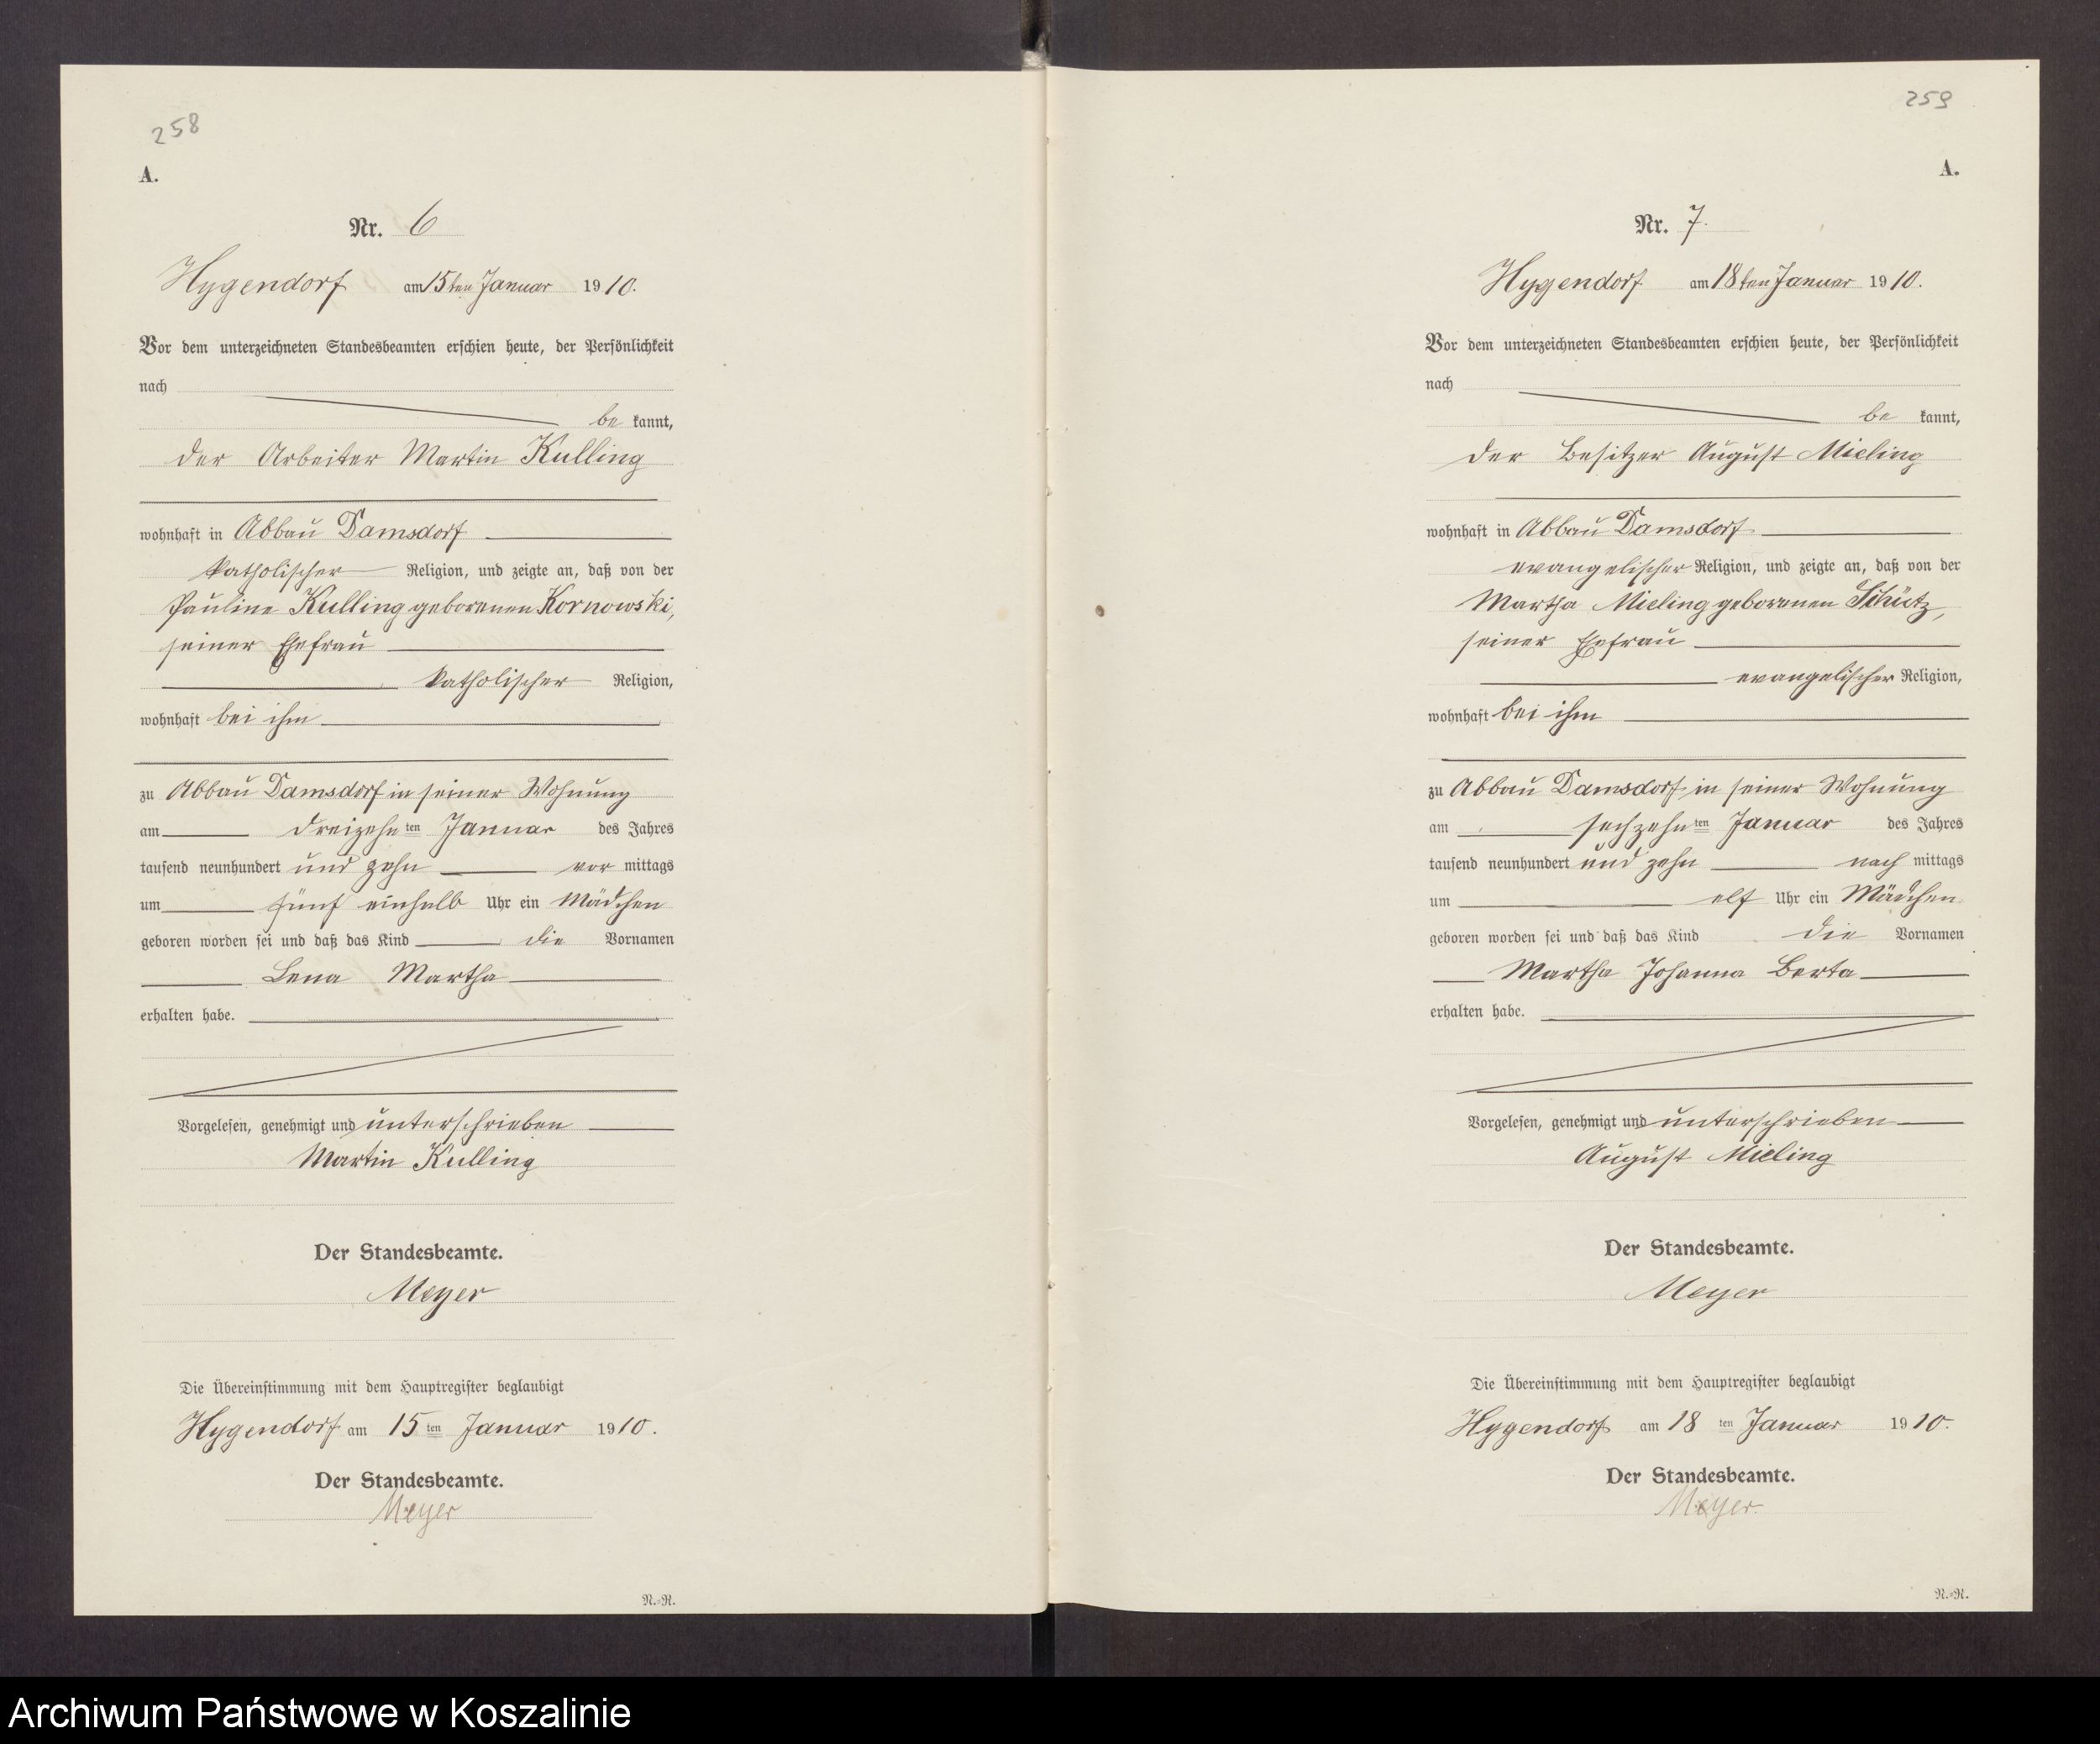 258
A.
Nr. 6
Hygendorf am 15ten Januar 1910.
Vor dem unterzeichneten Standesbeamten erschien heute, der Persönlichkeit
nach
be kannt,
der Arbeiter Martin Kulling
wohnhaft in Abbau Damsdorf
katholischer Religion, und zeigte an, daß von der
Pauline Kulling geborenen Kornowski,
seiner Ehefrau
katholischer Religion,
wohnhaft bei ihm
zu Abbau Damsdorf in seiner Wohnung
am dreizehn ten Januar des Jahres
tausend neunhundert und zehn vor mittags
um fünf einhalb Uhr ein Mädchen
geboren worden sei und daß das Kind die Vornamen
Lena Martha
erhalten habe.
Vorgelesen, genehmigt und unterschrieben
Martin Kulling
Der Standesbeamte.
Meyer
Die Übereinstimmung mit dem Hauptregister beglaubigt
Hygendorf am 15 ten Januar 1910.
Der Standesbeamte.
Meyer
N.-N.
259
A.
Nr. 7.
Hygendorf am 18ten Januar 1910.
Vor dem unterzeichneten Standesbeamten erschien heute, der Persönlichkeit
nach
be kannt,
der Besitzer August Mieling
wohnhaft in Abbau Damsdorf
evangelischer Religion, und zeigte an, daß von der
Martha Mieling geborenen Schütz,
seiner Ehefrau
evangelischer Religion,
wohnhaft bei ihm
zu Abbau Damsdorf in seiner Wohnung
am sechzehn ten Januar des Jahres
tausend neunhundert und zehn nach mittags
um elf Uhr ein Mädchen
geboren worden sei und daß das Kind die Vornamen
Martha Johanna Berta
erhalten habe.
Vorgelesen, genehmigt und unterschrieben
August Mieling
Der Standesbeamte.
Meyer
Die Übereinstimmung mit dem Hauptregister beglaubigt
Hygendorf am 18 ten Januar 1910.
Der Standesbeamte.
Meyer.
N.-N.
Archiwum Państwowe w Koszalinie